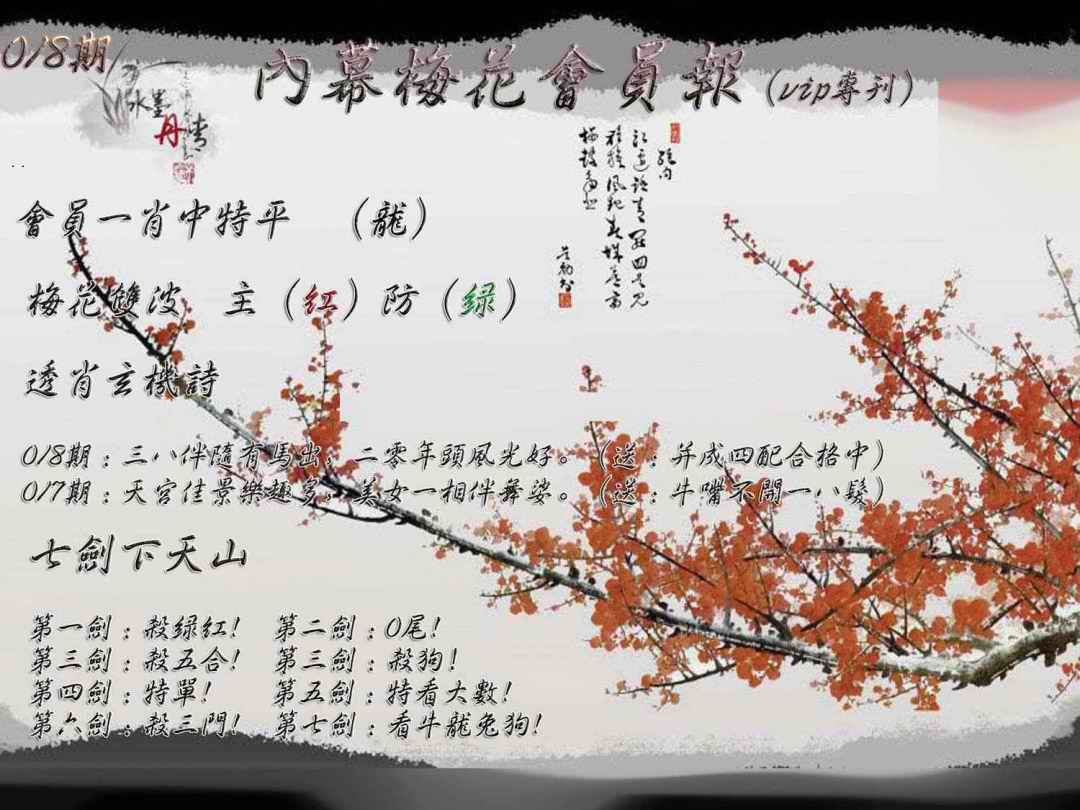 018期
內幕梅花會員報(vip專刊)
水墨
丹青
會員一肖中特平 (龍)
梅花雙波 主(紅)防(绿)
透肖玄機詩
018期:三八伴隨有馬出;二零年頭風光好。(送:并成四配合格中)
017期:天宮佳景樂趣多;美女一相伴舞娑。(送:牛嘴不開一八鬆)
七劍下天山
第一劍:殺绿紅! 第二劍:0尾!
第三劍:殺五合! 第三劍:殺狗!
第四劍:特單! 第五劍:特看大數!
第六劍:殺三門! 第七劍:看牛龍兔狗!